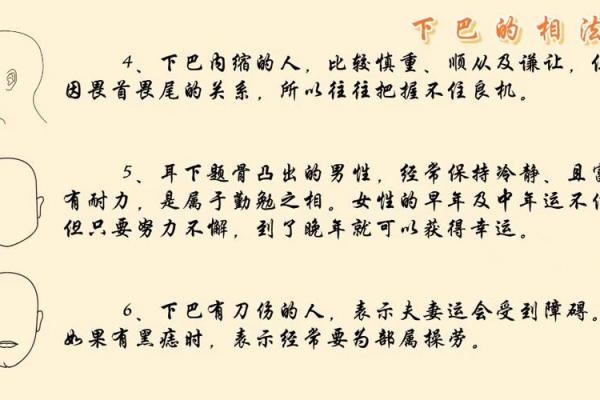 下巴的相法
4、下巴内缩的人，比较慎重、顺从及谦让，
因畏首畏尾的关系，所以往往把握不住良机。
5、耳下题骨凸出的男性，经常保持冷静、且富
有耐力，是属于勤勉之相。女性的早年及中年运不
但只要努力不懈，到了晚年就可以获得幸运。
6、下巴有刀伤的人，表示夫妻运会受到障碍。
如果有黑痣时，表示经常要为部属操劳。